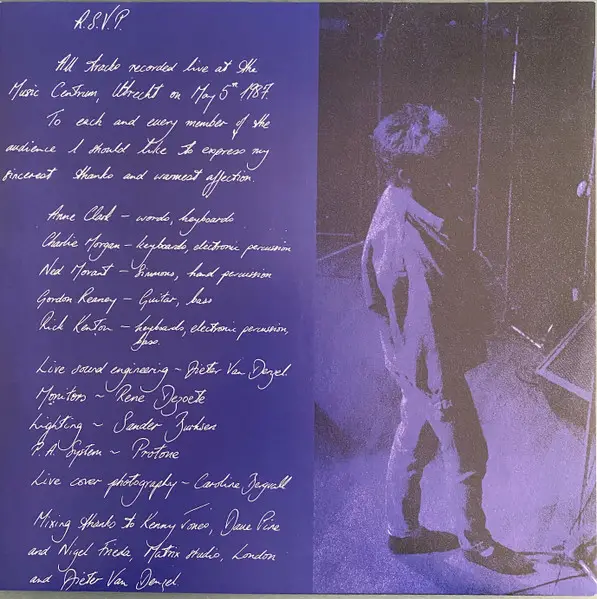 R.S.V.P.
All tracks recorded live at the
Music Centrum, Utrecht on May 5th 1987.
To each and every member of the
audience I should like to express my
sincerest thanks and warmest affection.
Anne Clark - words, keyboards
Charlie Morgan - keyboards, electronic percussion
Ned Morant - Simmons, hand percussion
Gordon Reaney - Guitar, bass
Rick Kenton - keyboards, electronic percussion,
bass.
Live sound engineering - Dieter Van Denzel.
Monitors - Rene Depoete
Lighting - Sander
P.A. System - Protone
Live cover photography - Caroline Bergvall
Mixing thanks to Kenny Jones, Dave Pine
and Nigel Frieda, Matrix studio, London
and Dieter Van Denzel.